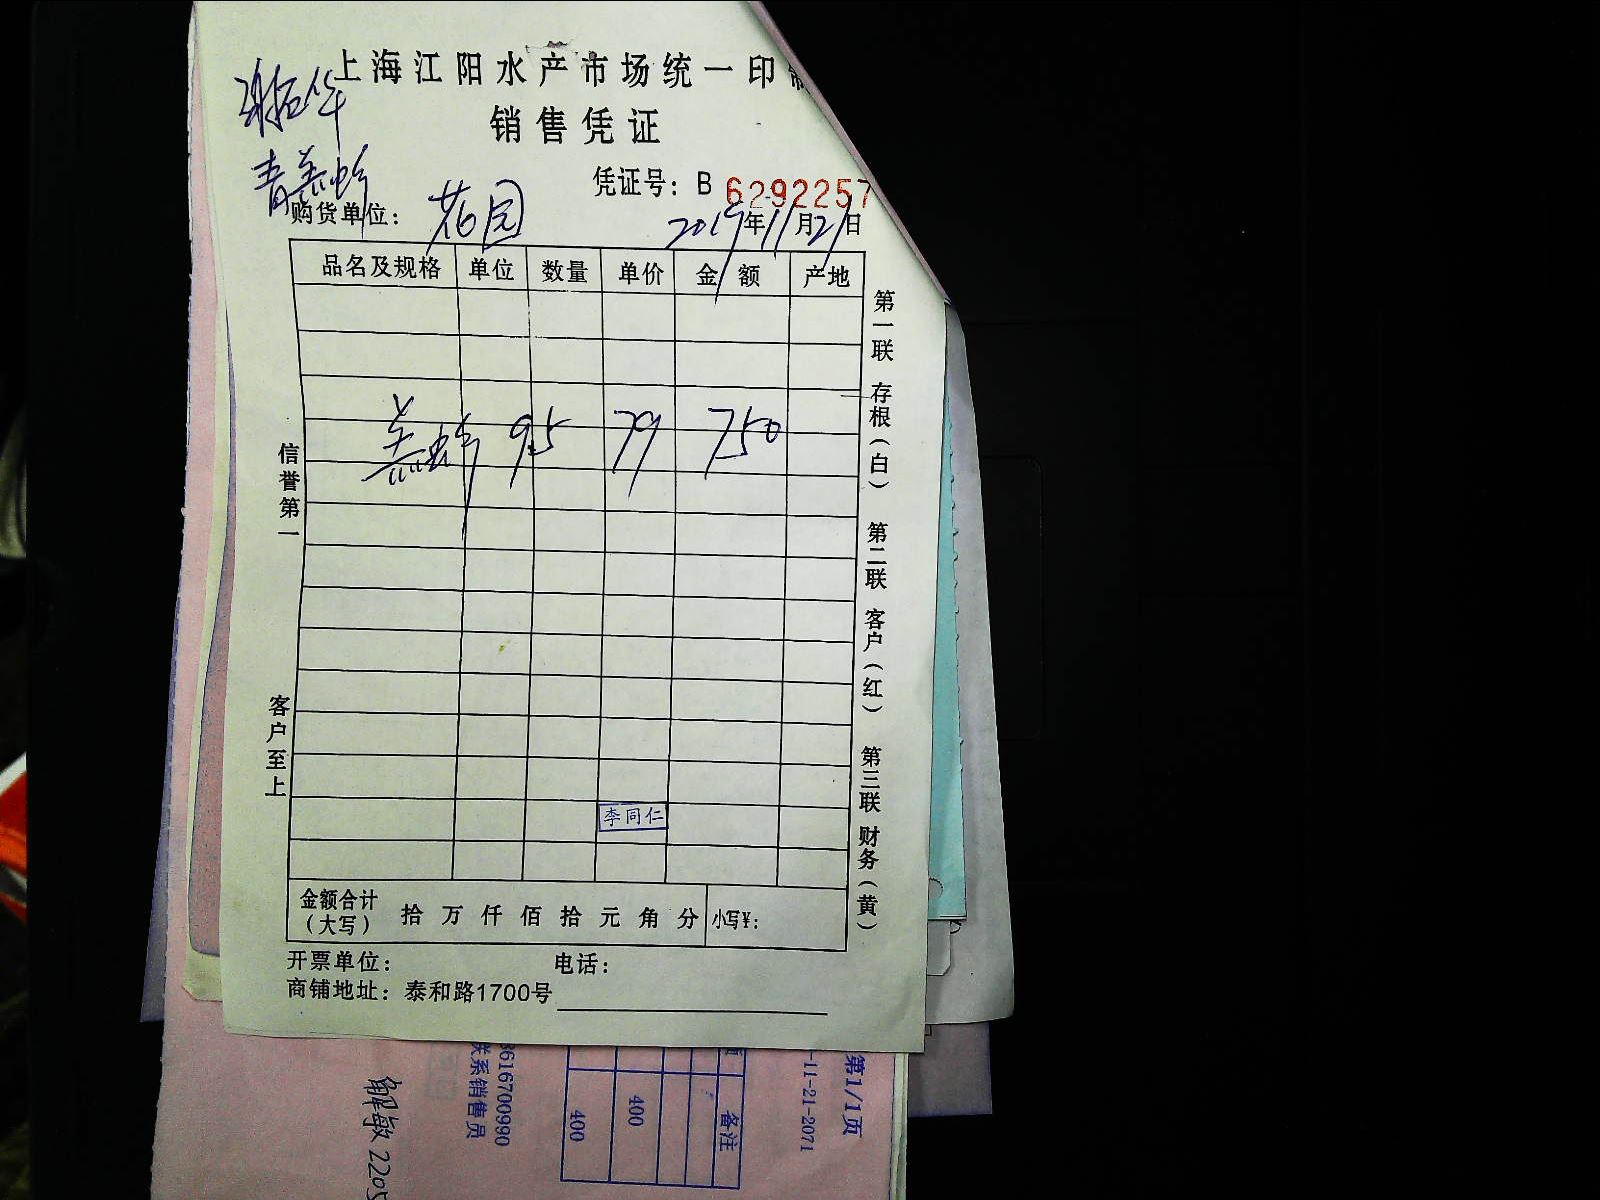 上海江阳水产市场统一印制
销售凭证
凭证号：B 6292257
购货单位：花园
2019年11月21日
品名及规格 单位 数量 单价 金额 产地
9.5 79 750
李同仁
金额合计（大写） 拾 万 仟 佰 拾 元 角 分 小写¥：
开票单位： 电话：
商铺地址：泰和路1700号
信誉第一
客户至上
第一联 存根（白）
第二联 客户（红）
第三联 财务（黄）
第1/1页
-11-21-2071
备注
400
400
3616700990
联系销售员
解敏 2205